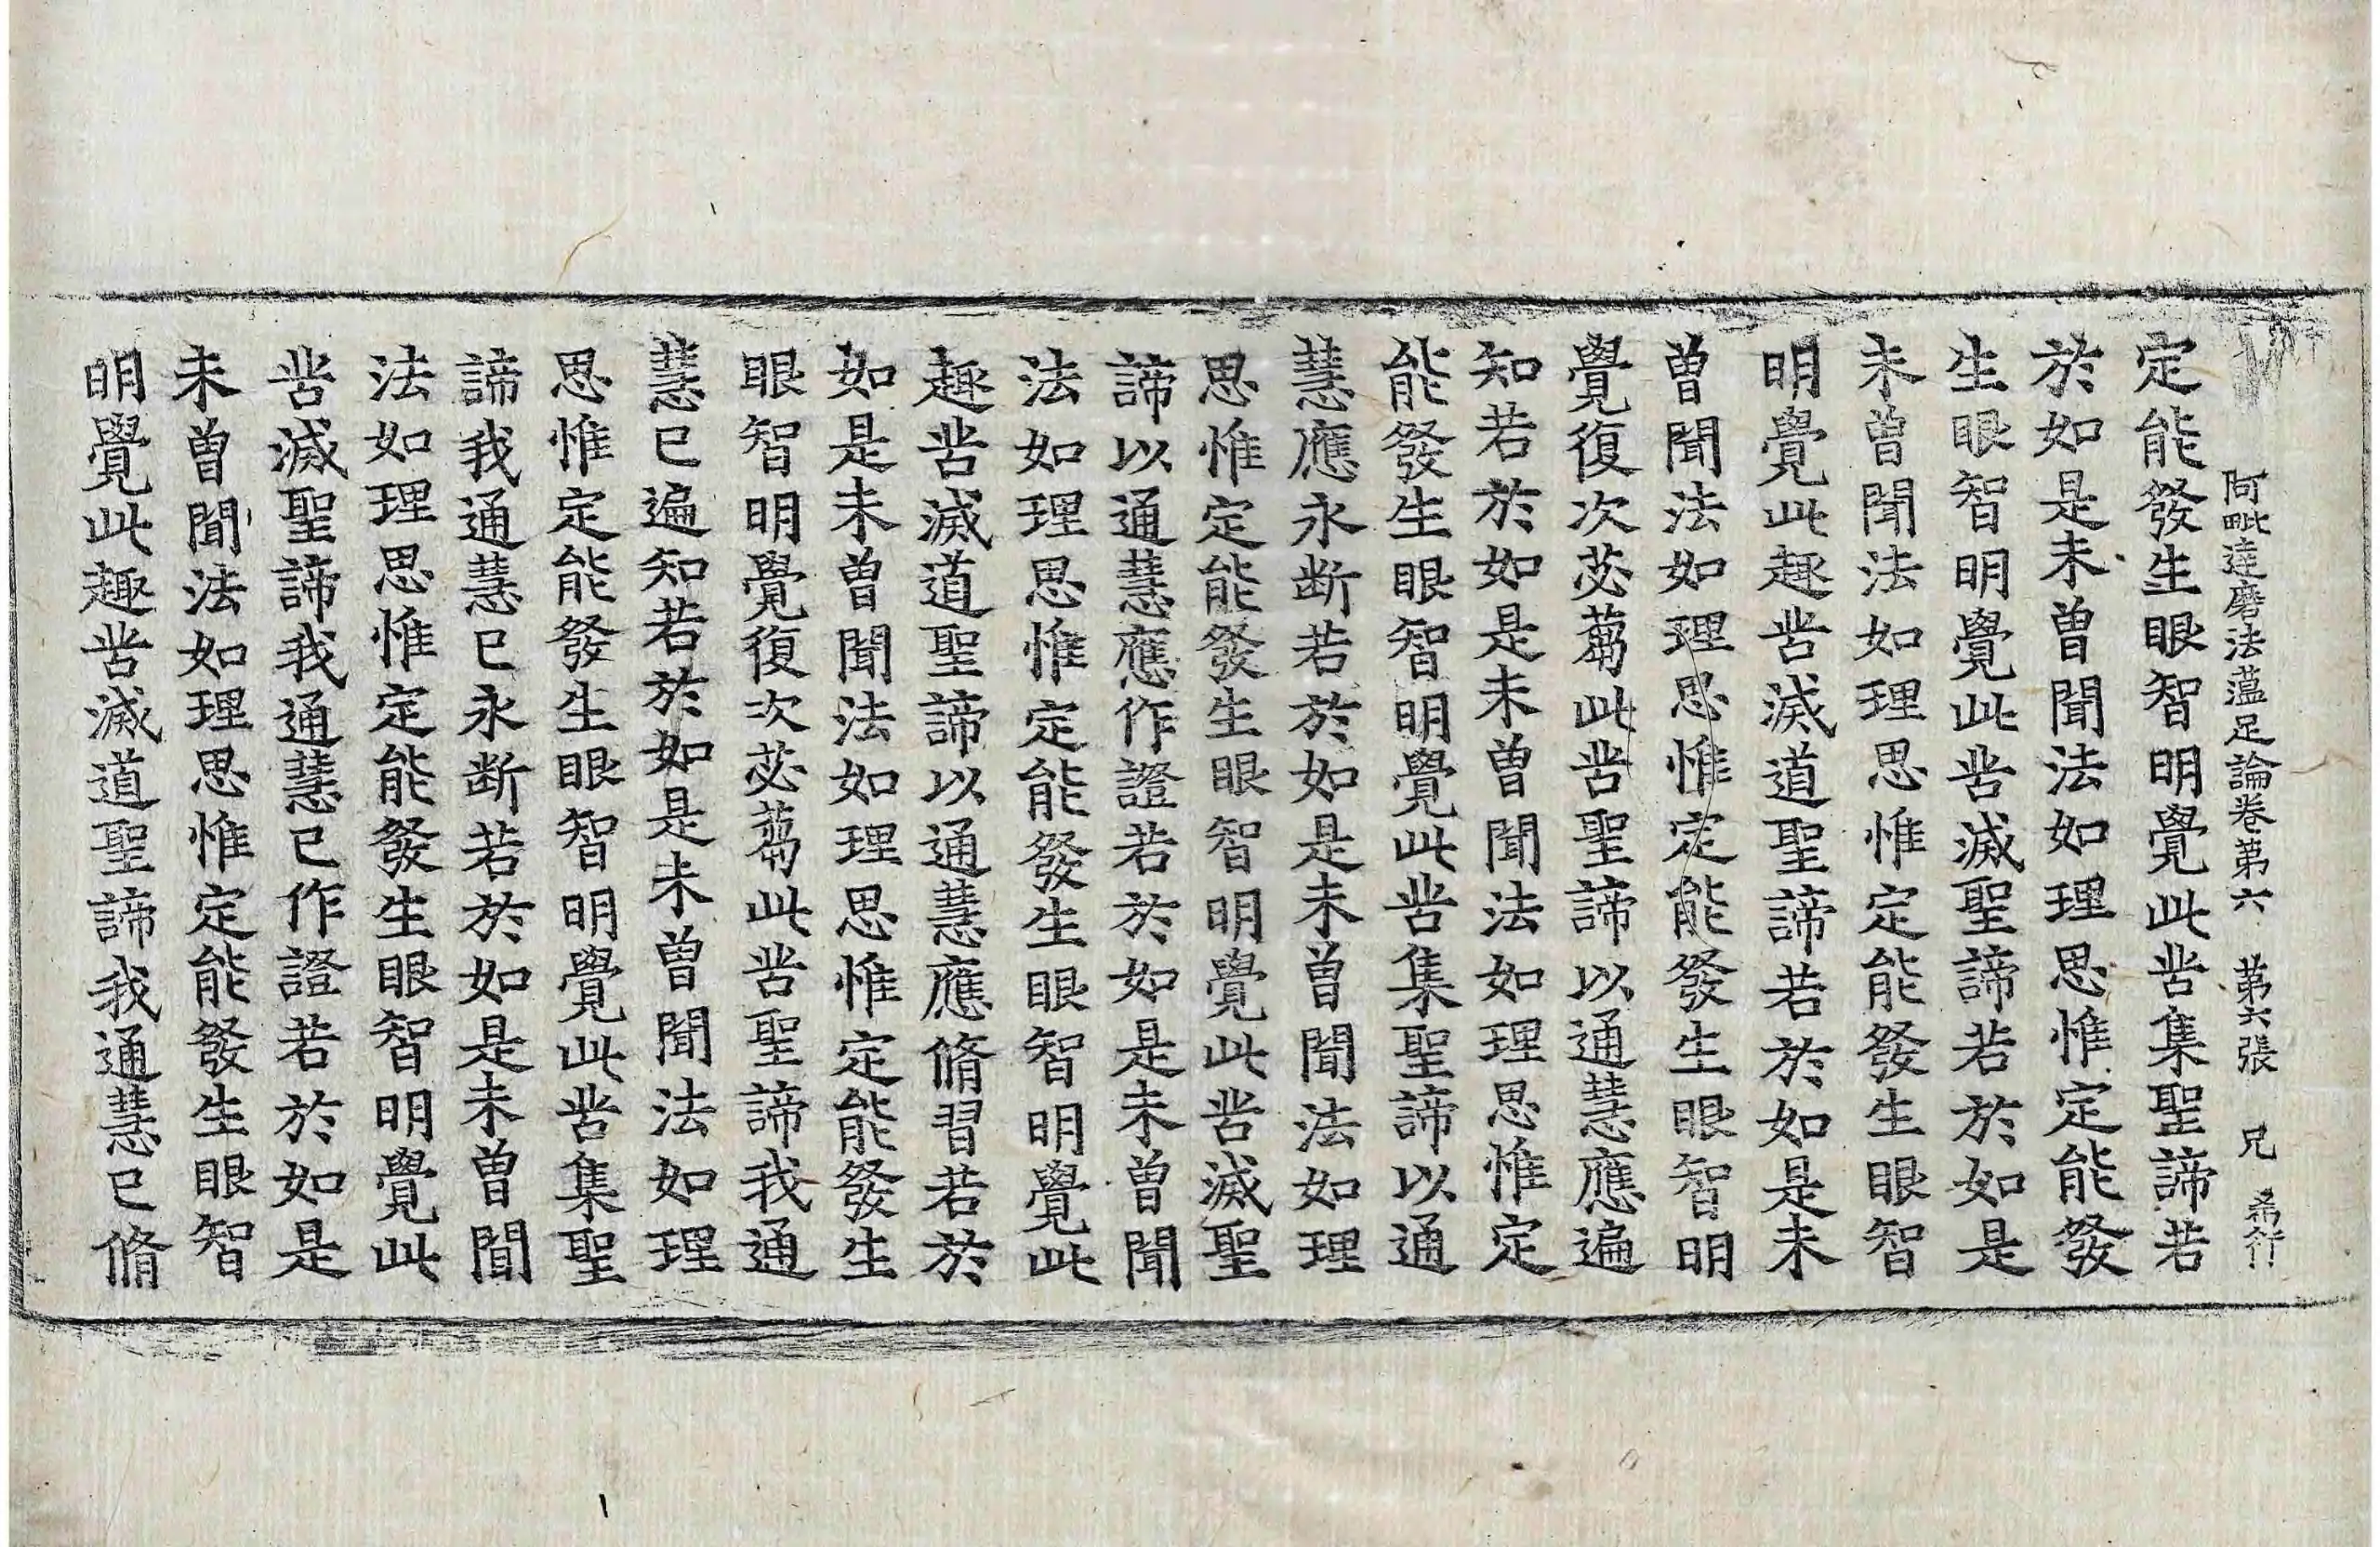 阿毗達磨法蘊足論卷第六 第六張 兄 希行
定能發生眼智明覺此苦集聖諦若
於如是未曽聞法如理思惟定能發
生眼智明覺此苦滅聖諦若於如是
未曽聞法如理思惟定能發生眼智
明覺此趣苦滅道聖諦若於如是未
曽聞法如理思惟定能發生眼智明
覺復次苾蒭此苦聖諦以通慧應遍
知若於如是未曽聞法如理思惟定
能發生眼智明覺此苦集聖諦以通
慧應永断若於如是未曽聞法如理
思惟定能發生眼智明覺此苦滅聖
諦以通慧應作證若於如是未曽聞
法如理思惟定能發生眼智明覺此
趣苦滅道聖諦以通慧應脩習若於
如是未曽聞法如理思惟定能發生
眼智明覺復次苾蒭此苦聖諦我通
慧已遍知若於如是未曽聞法如理
思惟定能發生眼智明覺此苦集聖
諦我通慧已永断若於如是未曽聞
法如理思惟定能發生眼智明覺此
苦滅聖諦我通慧已作證若於如是
未曽聞法如理思惟定能發生眼智
明覺此趣苦滅道聖諦我通慧已脩